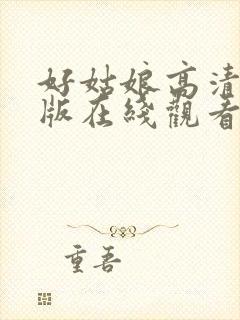 好姑娘高清
版在线觀看
重吾